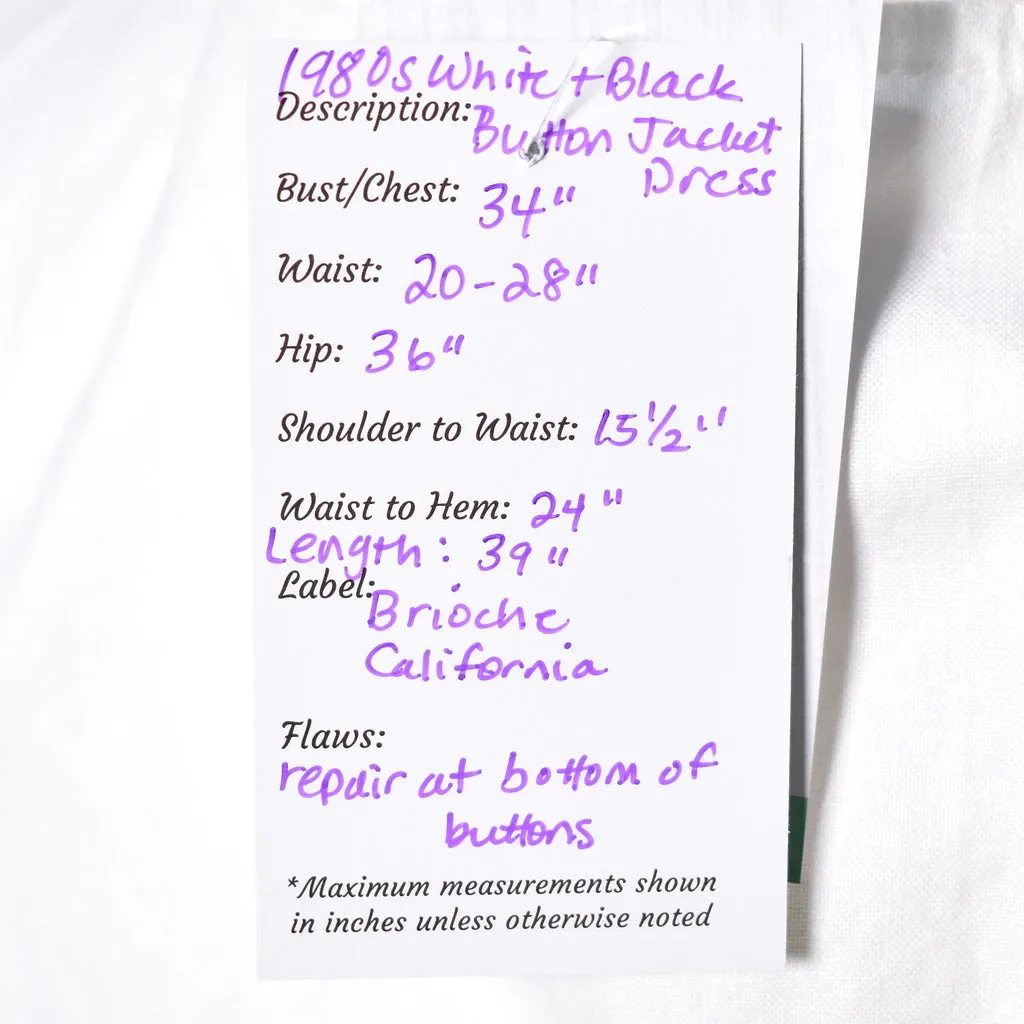 1980s White + Black
Description: Button Jacket
Dress
Bust/Chest: 34"
Waist: 20-28"
Hip: 36"
Shoulder to Waist: 15 1/2"
Waist to Hem: 24"
Length: 39"
Label:
Brioche
California
Flaws:
repair at bottom of
buttons
*Maximum measurements shown
in inches unless otherwise noted